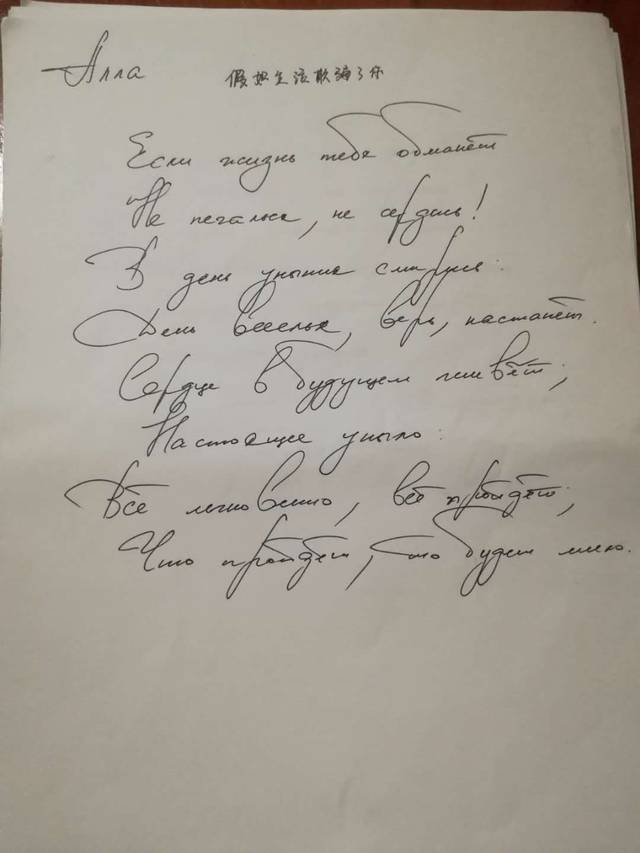 Алла
假如生活欺骗了你
Если жизнь тебя обманёт
Не печалься, не сердись!
В день уныния смирись:
День веселья, верь, настанёт.
Сердце в будущем живёт;
Настоящее уныло:
Всё мгновенно, всё пройдёт;
Что пройдёт, то будет мило.